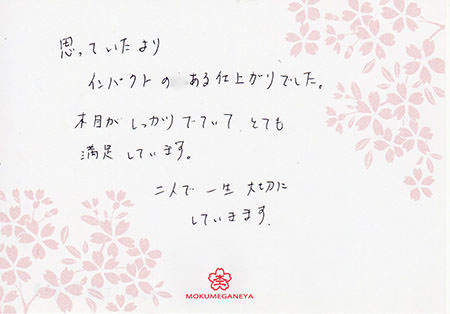 思っていたより
インパクトの ある仕上がりでした。
木目が しっかり でていて とても
満足しています。
二人で 一生 大切に
していきます.
MOKUMEGANEYA